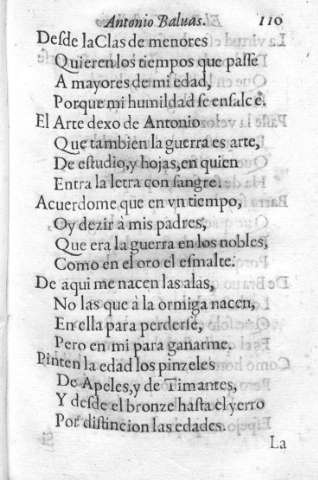 Antonio Baluas. 110
Desde la Clas de menores
Quieren los tiempos que passe
A mayores de mi edad,
Porque mi humildad se ensalce.
El Arte dexo de Antonio
Que tambien la guerra es arte,
De estudio, y hojas, en quien
Entra la letra con sangre.
Acuerdome que en vn tiempo,
Oy dezir à mis padres,
Que era la guerra en los nobles,
Como en el oro el esmalte.
De aqui me nacen las alas,
No las que à la ormiga nacen,
En ella para perderse,
Pero en mi para ganarme.
Pinten la edad los pinzeles
De Apeles, y de Timantes,
Y desde el bronze hasta el yerro
Por distincion las edades.
La